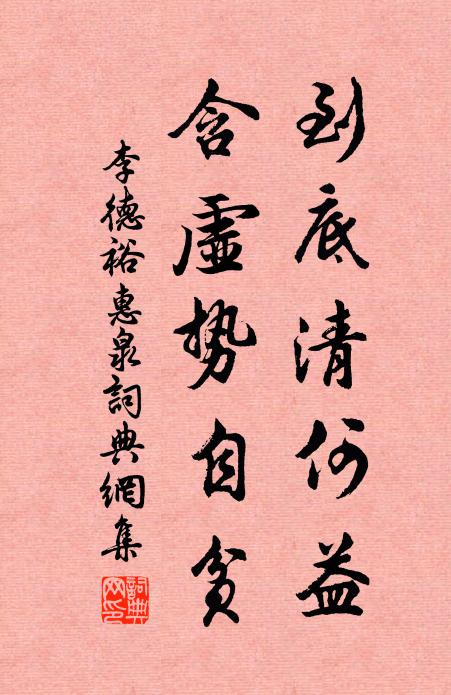 到底清何益
含虛勢自貧
李德裕惠泉詞典網集
詞典網印